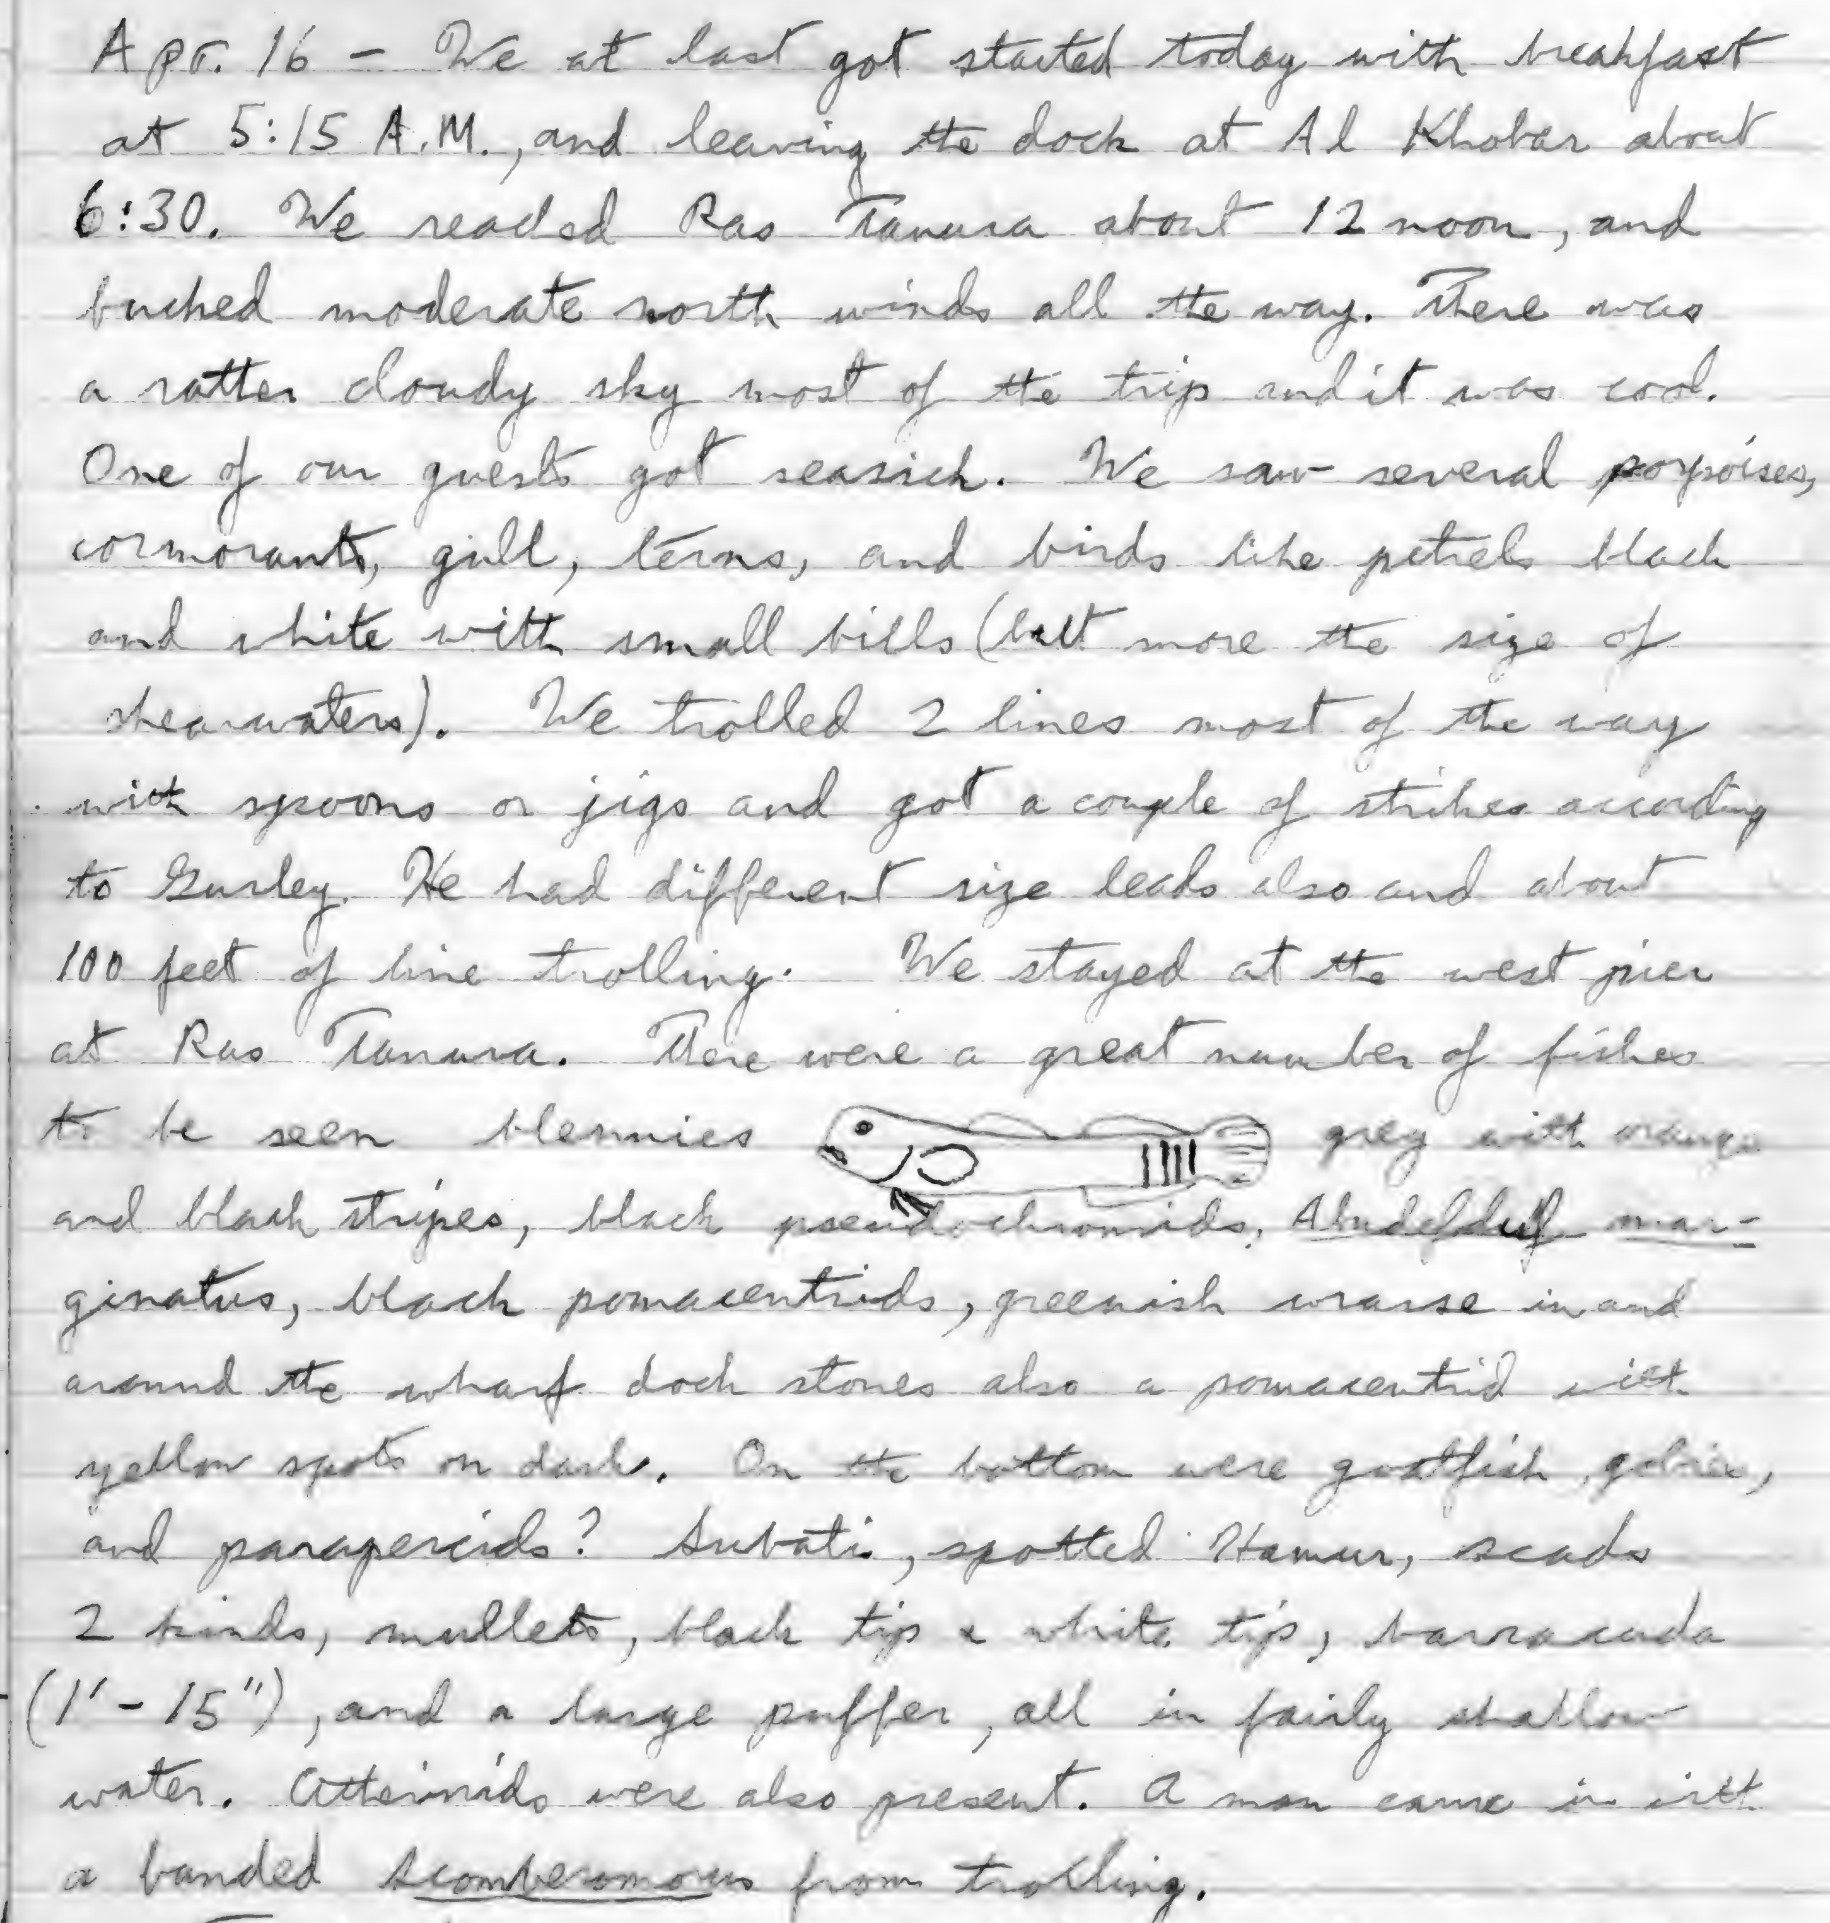 Apr. 16 - We at last got started today with breakfast
at 5:15 A.M., and leaving the dock at Al Khobar about
6:30. We reached Ras Tanura about 12 noon, and
bucked moderate north winds all the way. There was
a rather cloudy sky most of the trip and it was cool.
One of our guests got seasick. We saw several porpoises,
cormorants, gull, terns, and birds like petrels black
and white with small bills (but more the size of
shearwaters). We trolled 2 lines most of the way
with spoons or jigs and got a couple of strikes according
to Gurley. He had different size leads also and about
100 feet of line trolling. We stayed at the west pier
at Ras Tanura. There were a great number of fishes
to be seen blennies grey with orange
and black stripes, black pseudochromids, Abudefduf mar-
ginatus, black pomacentrids, greenish wrasse in and
around the wharf dock stones also a pomacentrid with
yellow spots on dark. On the bottom were goatfish, gobies,
and parapercids? Subati, spotted Hamur, scads
2 kinds, mullets, black tip & white tip, barracuda
(1' - 15"), and a large puffer, all in fairly shallow
water. Atherinids were also present. A man came in with
a banded Scomberomorus from trolling.